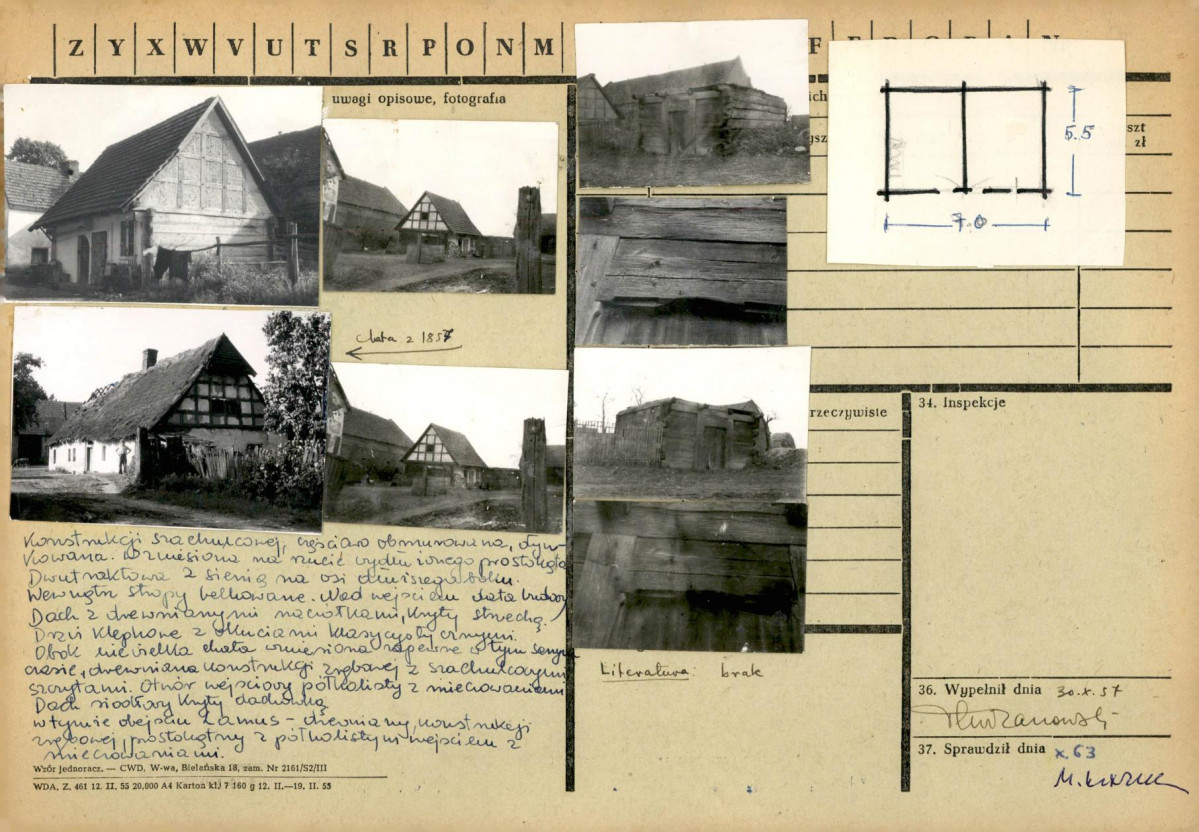 Z Y X W V U T S R P O N M
uwagi opisowe, fotografia
ich
zł
5.5
7.0
chata z 1857
rzeczywiste
34. Inspekcje
Konstrukcji szachulcowej, częściowo obmurowana, otyn-
kowana. Wzniesiona na rzucie wydłużonego prostokąta
Dwutraktowa z sienią na osi dłuższego boku.
Wewnątrz stropy belkowane. Nad wejściem data budowy
Dach z drewnianymi naciółkami, kryty strzechą.
Drzwi klepkowe z okuciami klasycystycznymi.
Obok niewielka chata wzniesiona zapewne w tym samym
czasie, drewniana konstrukcji zrębowej z szachulcowymi
szczytami. Otwór wejściowy półkolisty z mieczowaniami
Dach siodłowy kryty dachówką
w tymże obejściu Lamus - drewniany, konstrukcji
zrębowej, prostokątny z półkolistym wejściem z
mieczowaniami.
Wzór jednoracz. — CWD, W-wa, Bielańska 18, zam. Nr 2161/S2/III
WDA. Z. 461 12. II. 55 20.000 A4 Karton kl. 7 160 g 12. II.—19. II. 55
Literatura: brak
36. Wypełnił dnia 30.X.57
37. Sprawdził dnia X 63